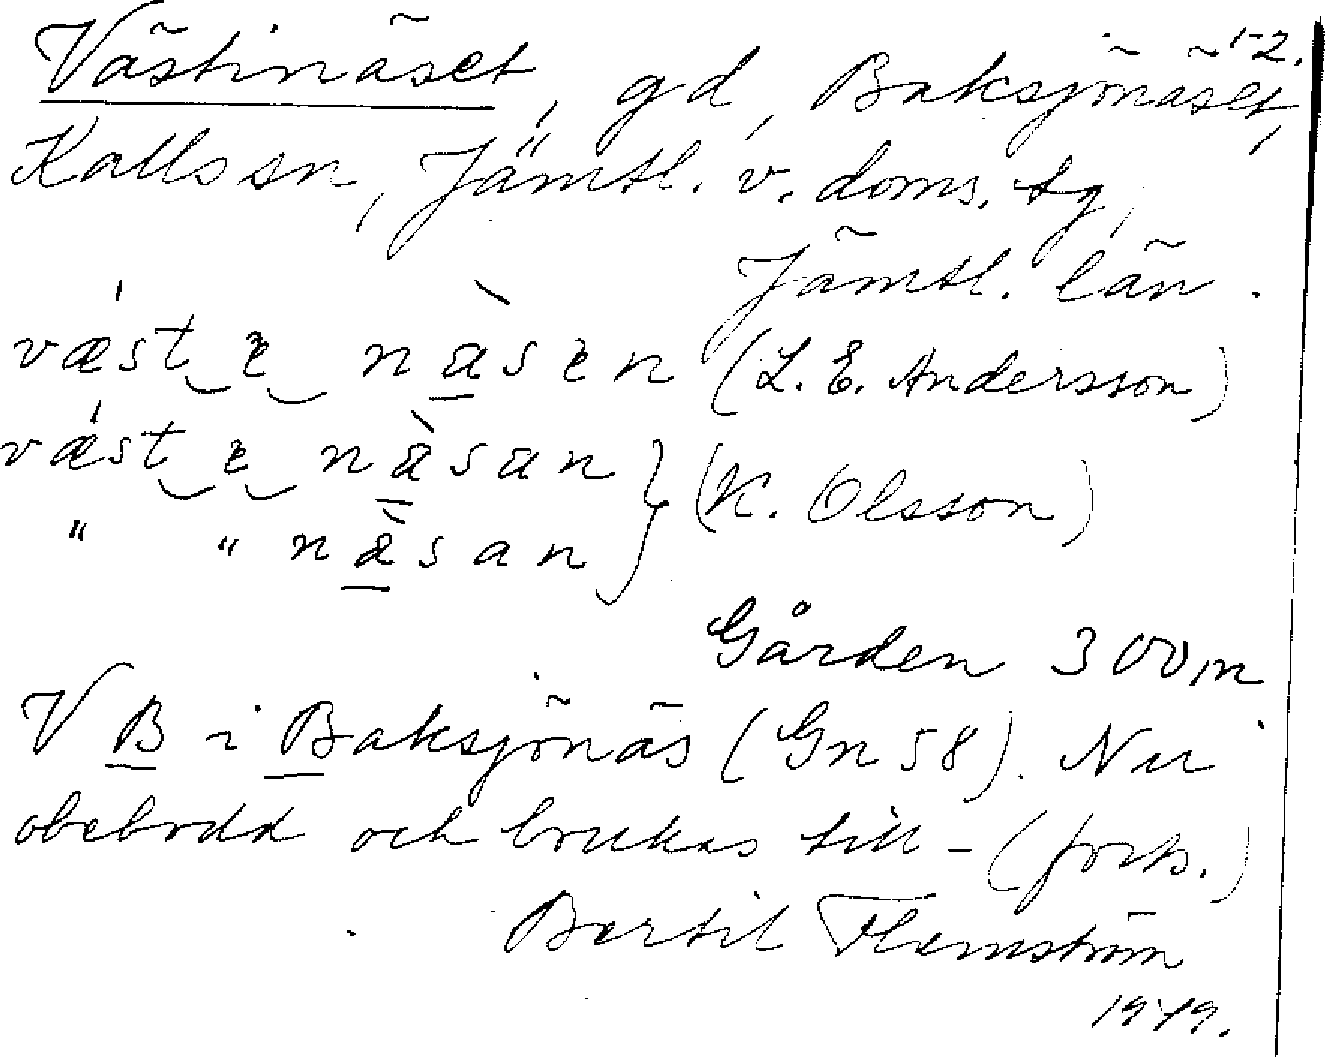 1-2.
Västinäset, gd, Baksjönäset,
Kalls sn, Jämtl. v. doms. tg,
Jämtl. län.
vǽst e nàsen (L. E. Andersson)
vǽst e nàsan } (K. Olsson)
" " nàsan
Gården 300 m
V B i Baksjönäs (Gn 58). Nu
obebodd och brukas till- (forts.)
Bertil Flemström
1979.